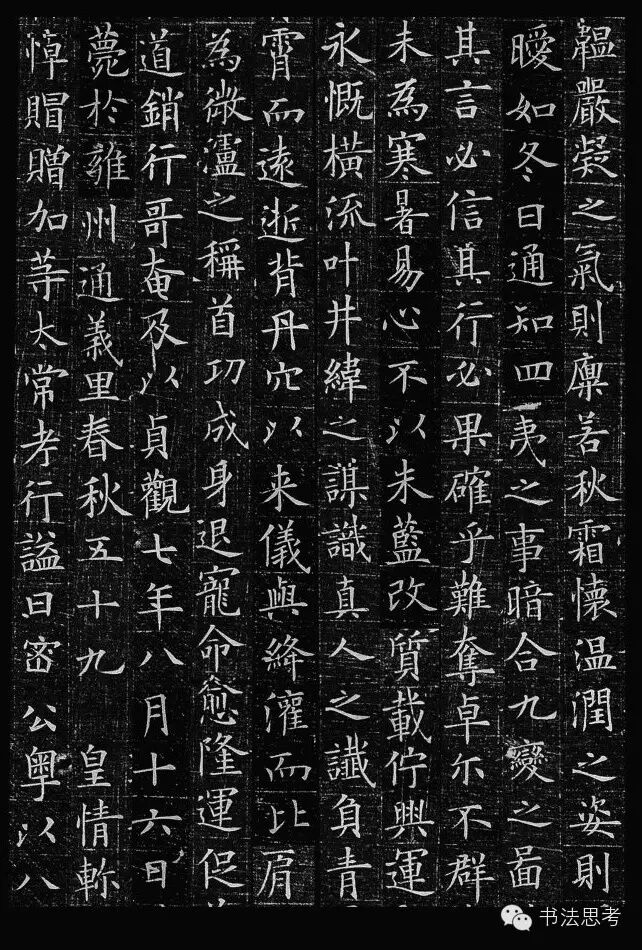 韞嚴凝之氣則稟若秋霜懷溫潤之姿則
曖如冬日通知四夷之事暗合九變之啚
其言必信其行必果確乎難奪卓尒不群
未為寒暑易心不以朱藍改質載佇興運
永慨橫流叶井緯之謀識真人之讖負青
霄而遠逝背丹穴以来儀與絳灌而比肩
為微瀘之稱首功成身退寵命愈隆運促
道銷行哥奄及以貞觀七年八月十六日
薨於雍州通義里春秋五十九 皇情軫
悼賵贈加等太常考行謚曰密 公粵以八
书法思考